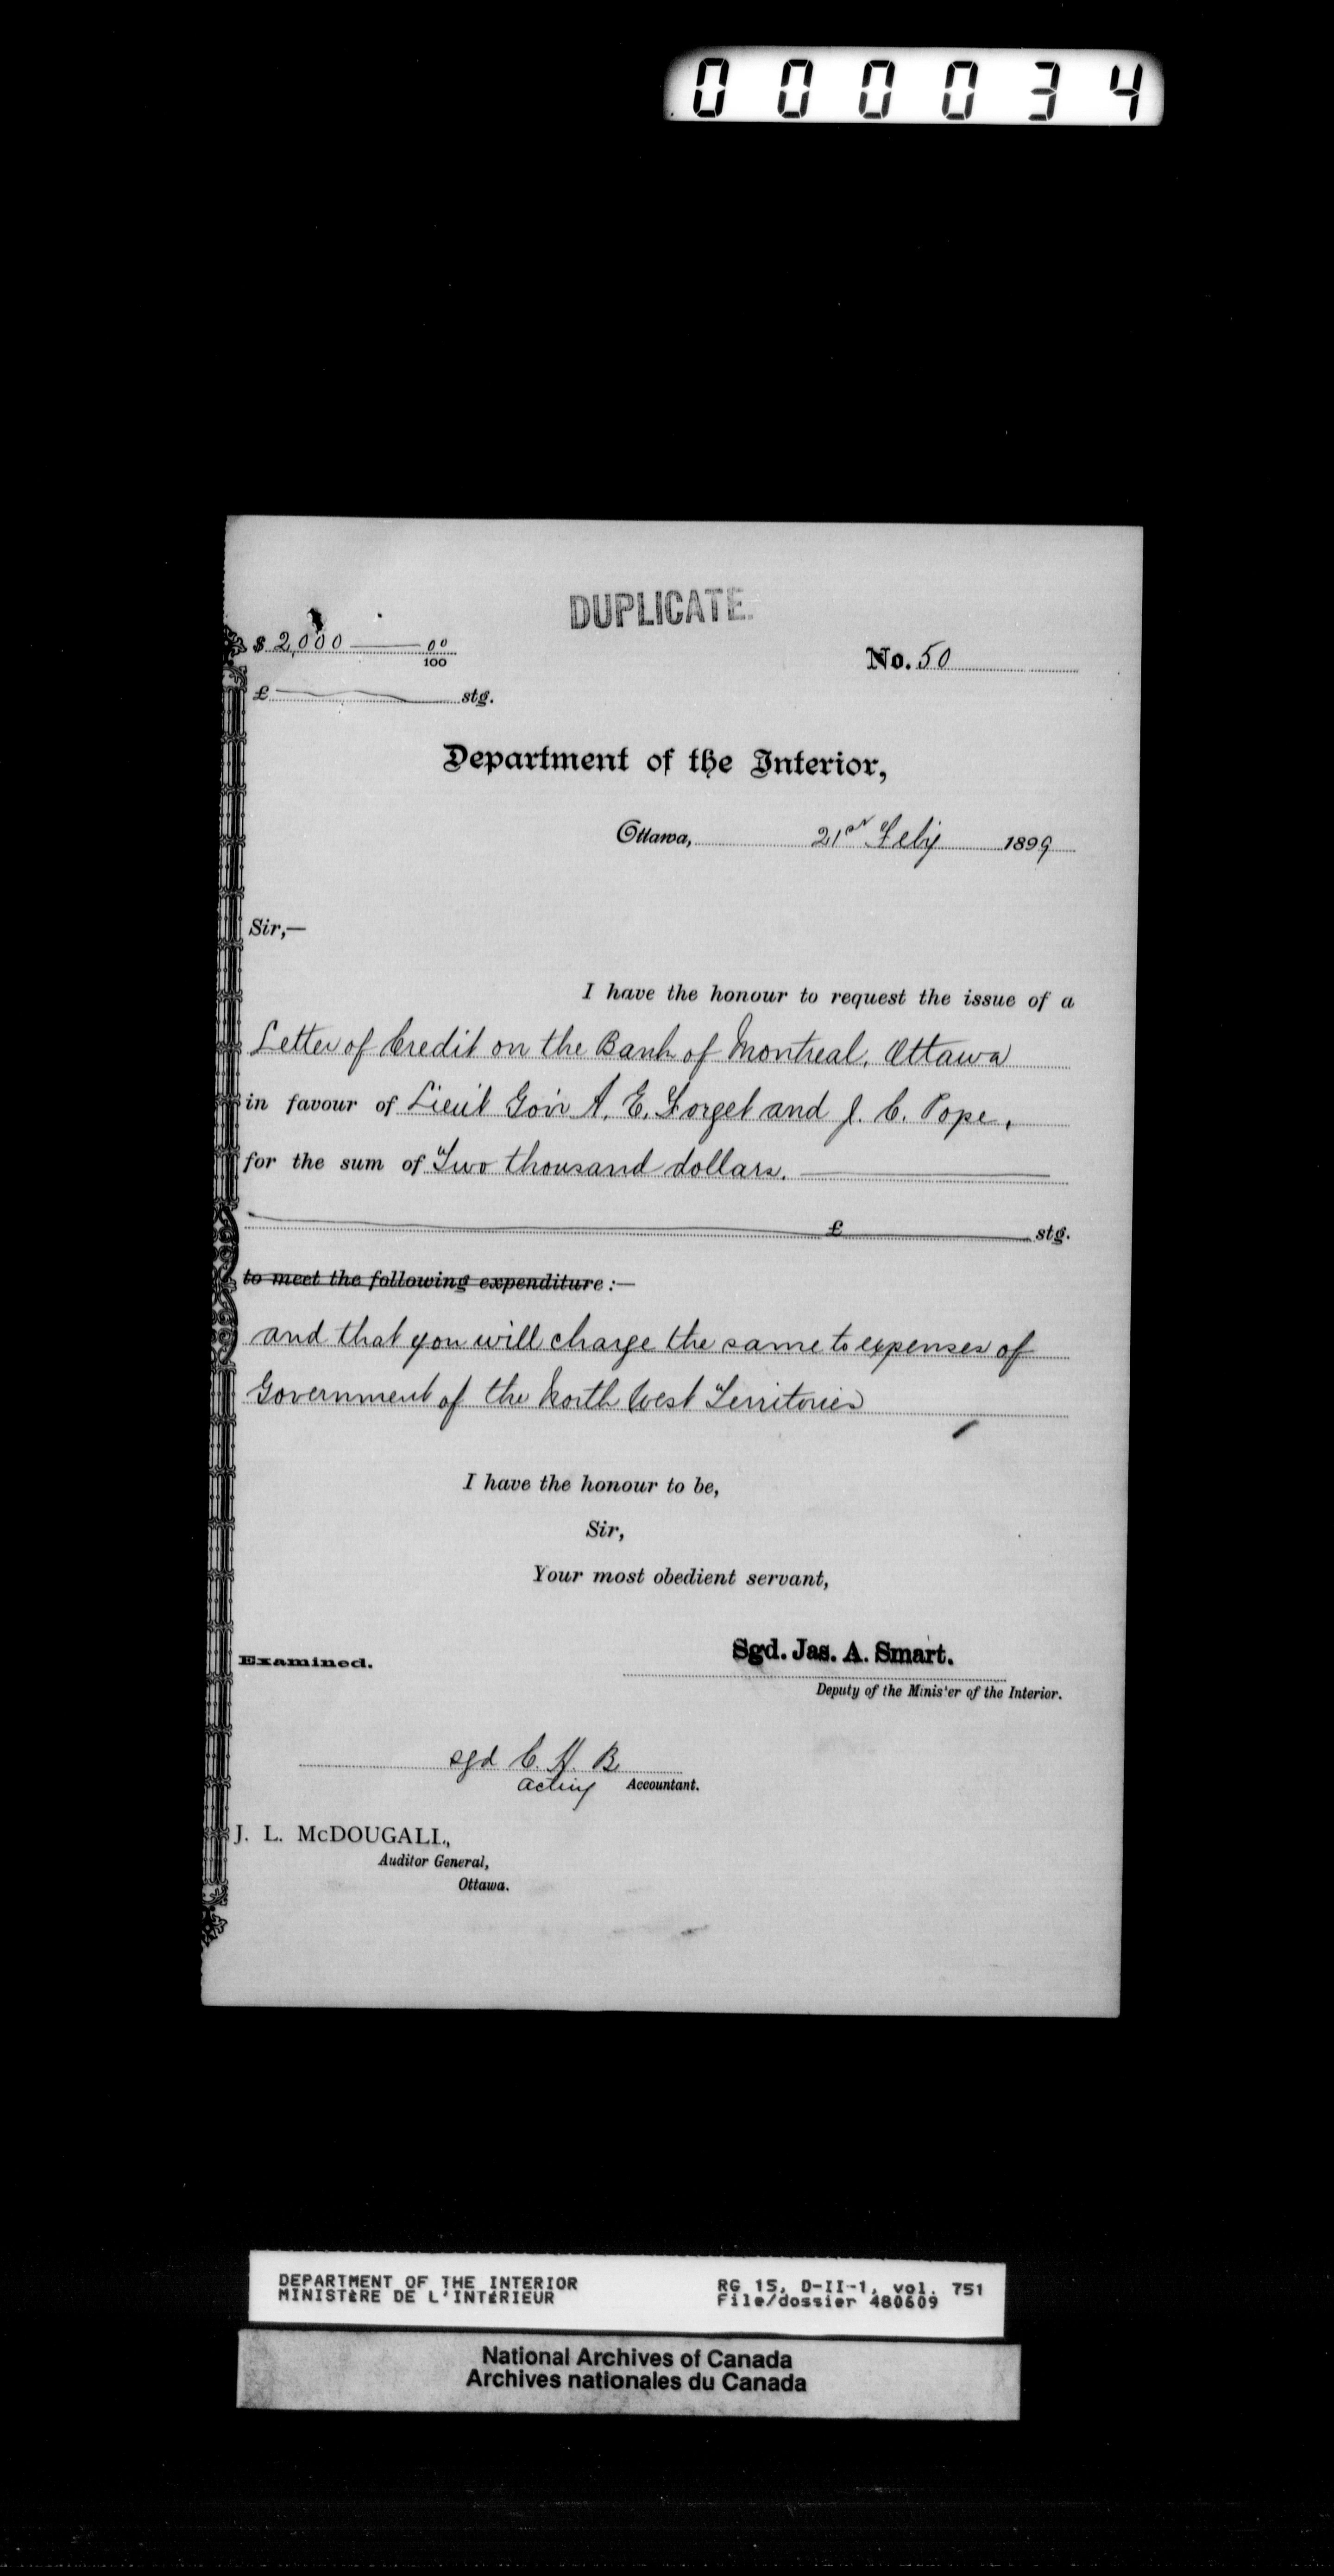 000034
DUPLICATE.
$ 2,000 00/100
No. 50
£ stg.
Department of the Interior,
Ottawa, 21st Feby 1899
Sir,—
I have the honour to request the issue of a
Letter of Credit on the Bank of Montreal, Ottawa
in favour of Lieut Gov'r A. E. Forget and J. C. Pope,
for the sum of Two thousand dollars.
£ stg.
to meet the following expenditure :—
and that you will charge the same to expenses of
Government of the North West Territories
I have the honour to be,
Sir,
Your most obedient servant,
Sgd. Jas. A. Smart.
Examined.
Deputy of the Minis'er of the Interior.
sgd C. H. B
acting Accountant.
J. L. McDOUGALL,
Auditor General,
Ottawa.
DEPARTMENT OF THE INTERIOR RG 15, D-II-1, vol. 751
MINISTÈRE DE L'INTÉRIEUR File/dossier 480609
National Archives of Canada
Archives nationales du Canada